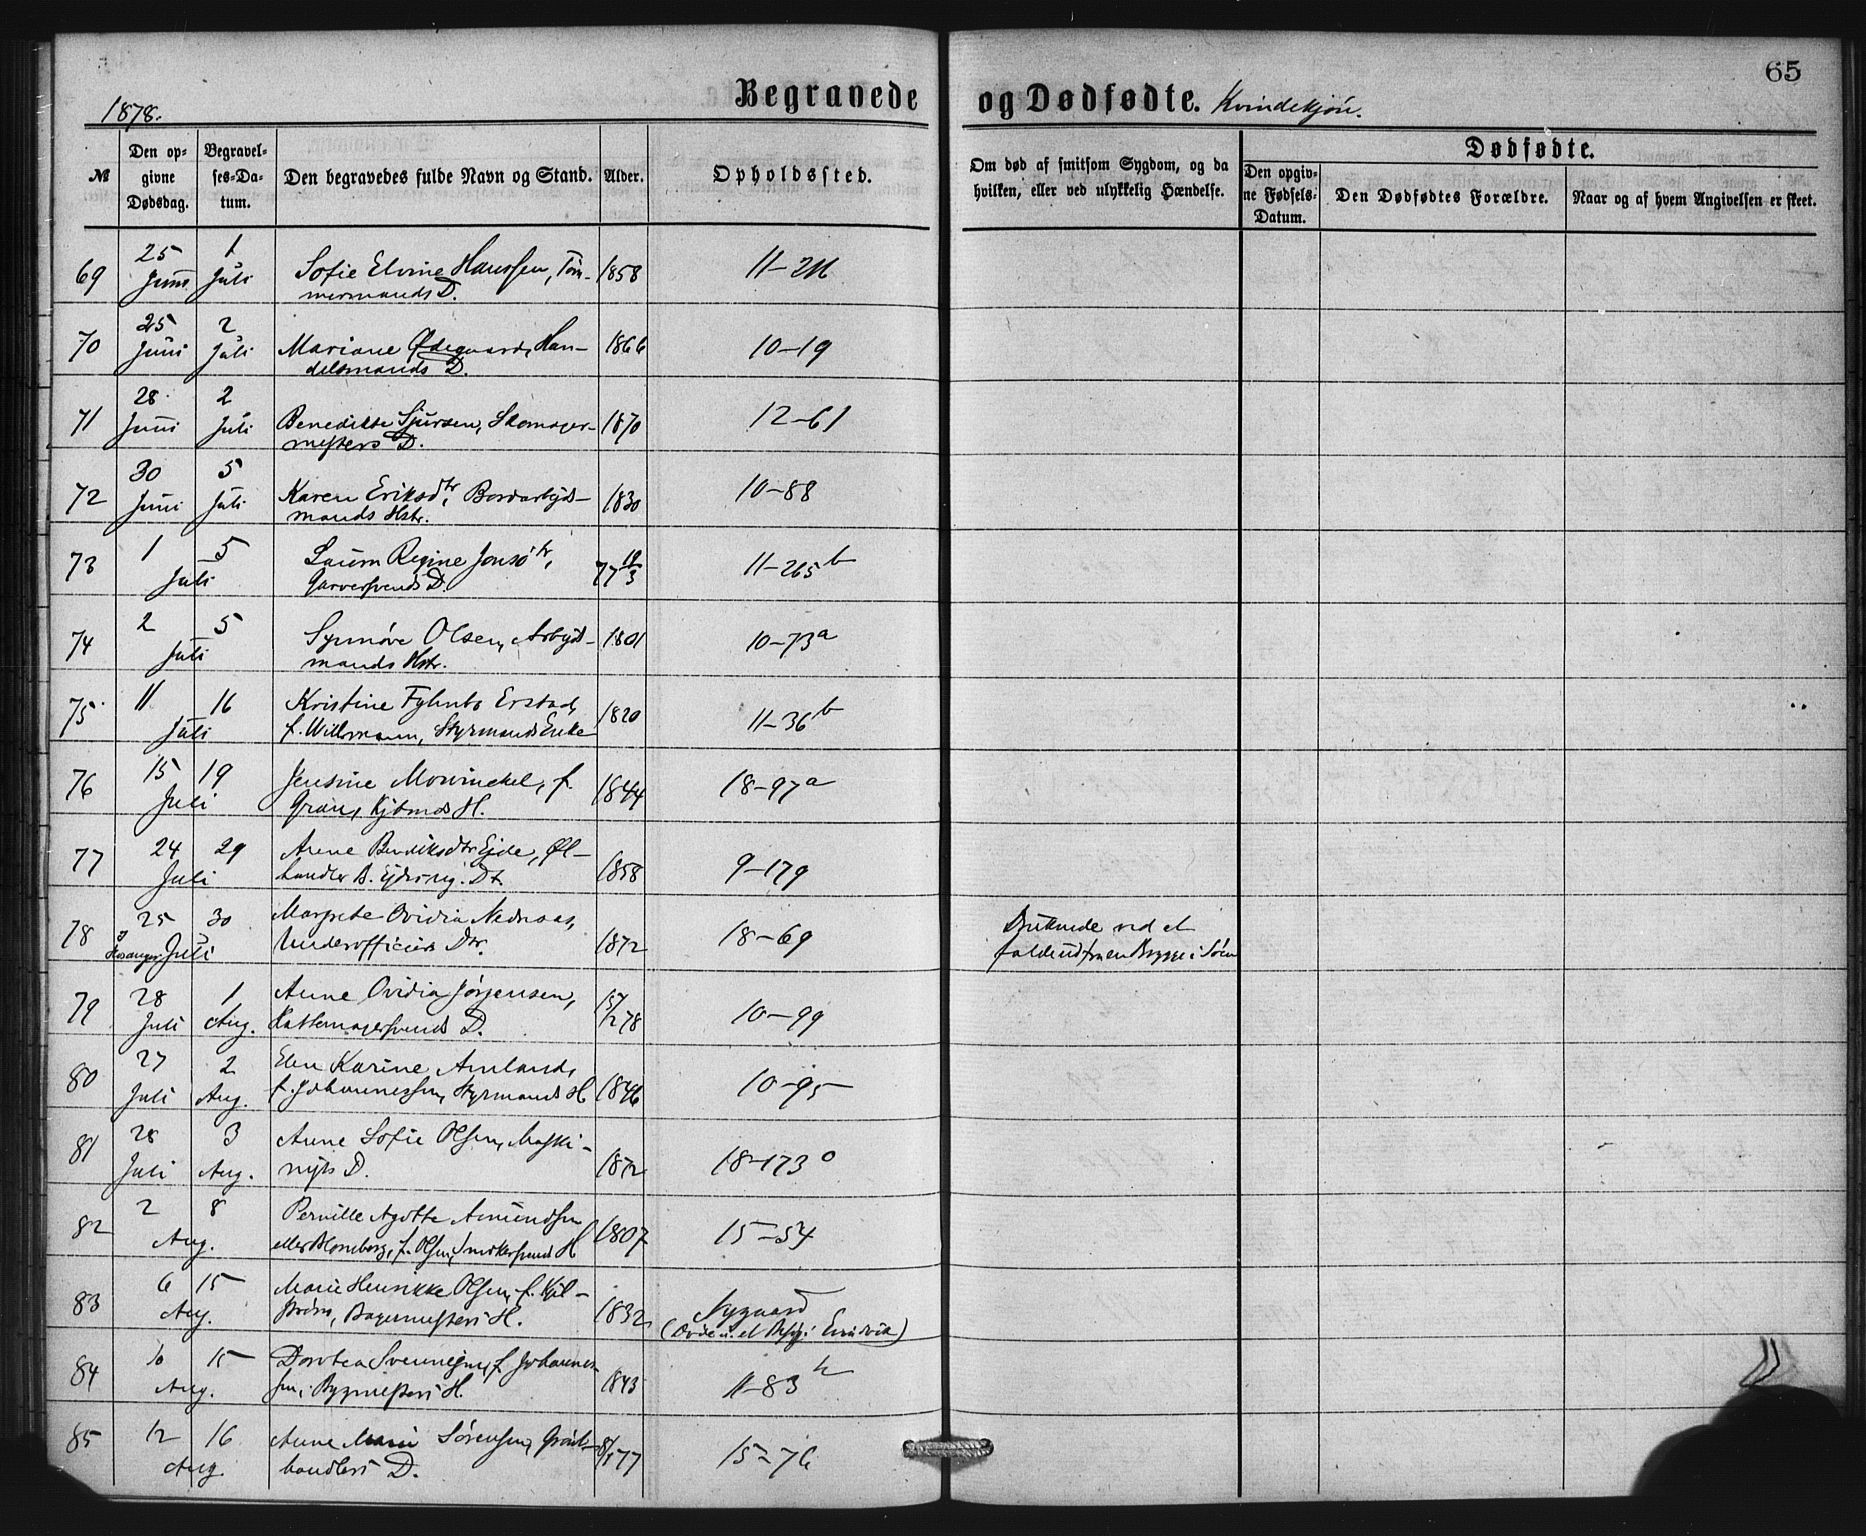 65
1878.
Begravede og Dødfødte. Kvindekjøn.
№
Den opgivne Dødsdag.
Begravelses-Datum.
Den begravedes fulde Navn og Stand.
Alder.
Opholdssted.
Om død af smitsom Sygdom, og da hvilken, eller ved ulykkelig Hændelse.
Dødfødte.
Den opgivne Fødsels-Datum.
Den Dødfødtes Forældre.
Naar og af hvem Angivelsen er skeet.
69 25 Juni 1 Juli Sofie Elvine Hanssen, Tøm- 1858 11-211
mermands D.
70 25 Juni 2 Juli Mariane Ødegaard, Han- 1866 10-19
delsmands D.
71 28 Juni 2 Juli Benedikte Sjursen, Skomager- 1870 12-61
mesters D.
72 30 Juni 5 Juli Karen Eriksdtr, Bordarbejds- 1830 10-88
mands Hstr.
73 1 5 Juli Regine 77 19/3 11-265 b
Garversvends D.
74 2 5 Juli Synnøve Olsen, Arbejds- 1801 10-73 a
mands Hstr.
75 11 16 Juli Kristine Erstad, 1820 11-36 b
f. Willmann, Styrmands Enke
76 15 19 Juli Jensine Mowinckel, f. 1844 18-97 a
Gran, Kjbmds H.
77 24 29 Juli Anne Bendiksdtr Ejde, Øl- 1858 9-179
handler B. Dt.
78 25 30 Juli Margrete Ovidia Nedreaas, 1872 18-69
Underofficiers Dtr.
Druknede ved at
falde ud fra en Brygge i Søen
79 28 Juli 1 Aug. Anne Ovidia Jørgensen, 15/1278 10-99
Hattemagersvends D.
80 27 Juli 2 Aug. Elen Karine Amland, 1846 10-95
f. Johannessen, Styrmands H
81 28 Juli 3 Aug. Anne Sofie Olsen, Maski- 1872 18-173 o
nists D.
82 2 8 Aug. Pernille Agathe Amundsen 1807 15-54
eller Blomberg, f. Olsen, H
83 6 15 Aug. Marie Henrikke Olsen, f. Kjel- 1832 Nygaard
strøm, Bagermesters H.
84 10 15 Aug. Dorotea f. Johannes- 1843 11-83 h
sen, Bygmesters H.
85 12 16 Aug. Anne Marie Sørensen, 8/1 77 15-76
handlers D.